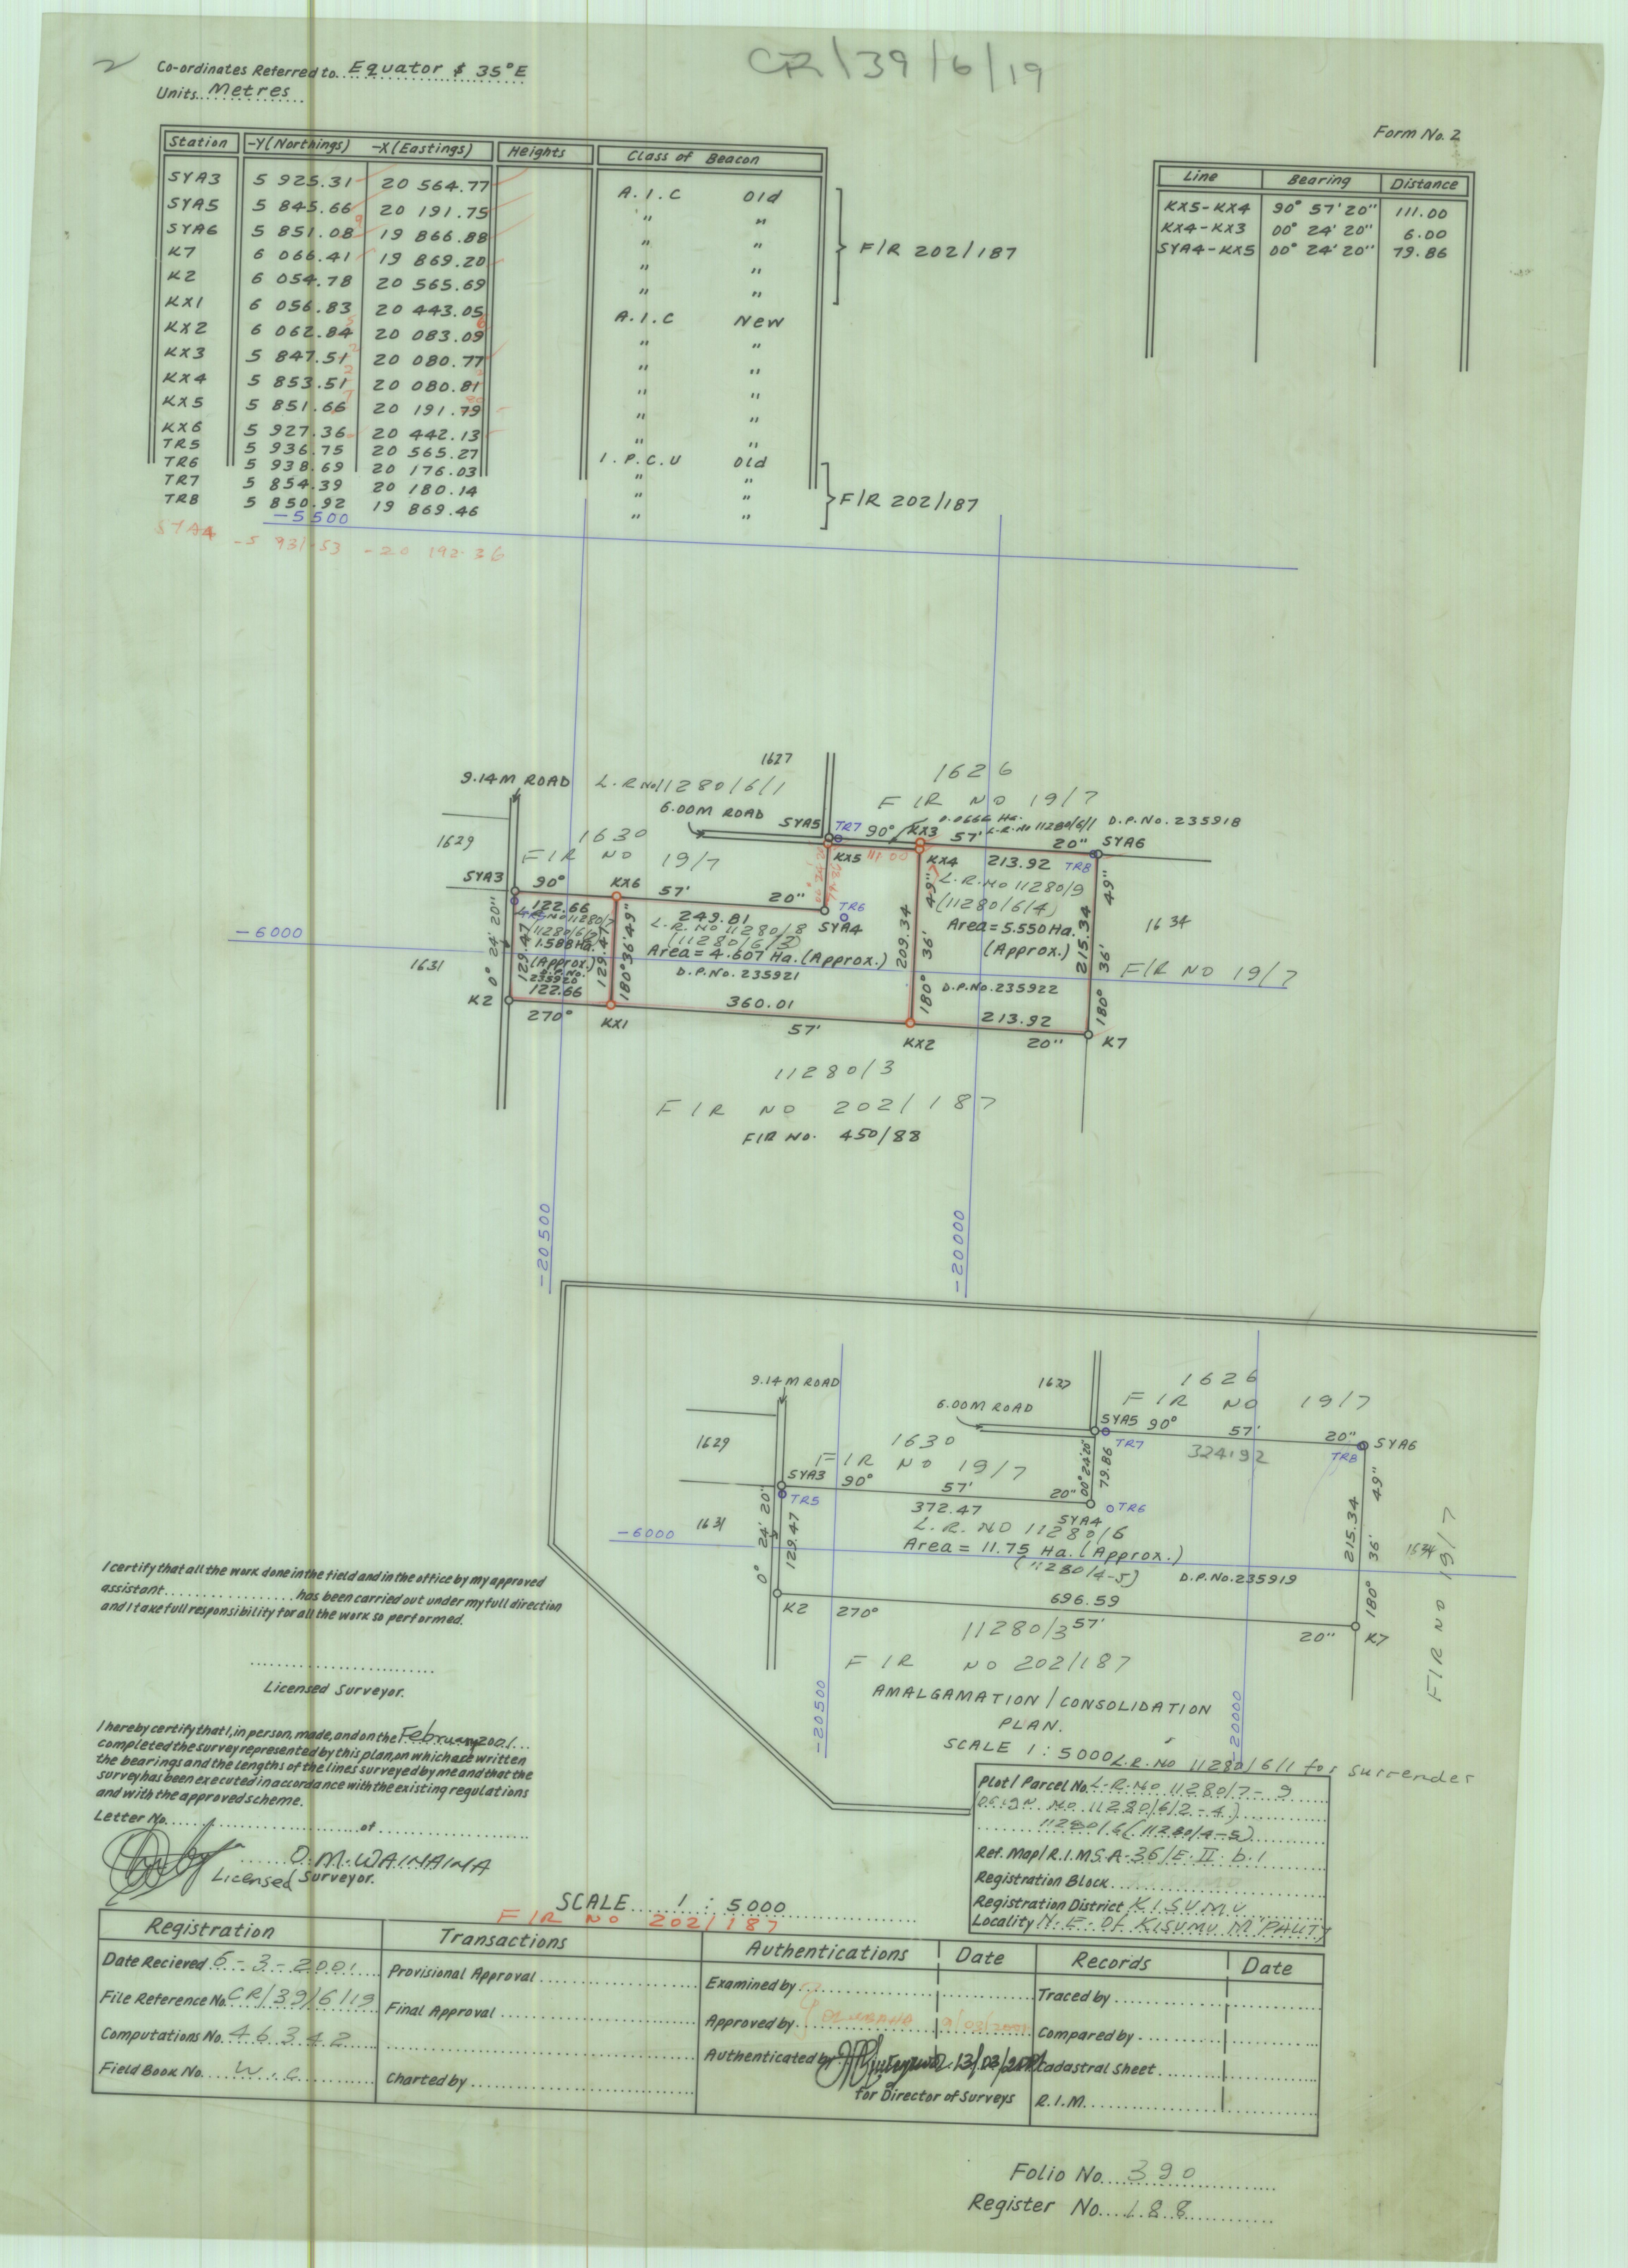 CR/39/6/19
Co-ordinates Referred to.. Equator & 35°E
Units.. Metres
Form No. 2
Station -Y(Northings) -X(Eastings) Heights Class of Beacon
SYA3 5 925.31 20 564.77 A.I.C Old
SYA5 5 845.66 20 191.75 " "
SYA6 5 851.08 19 866.88 " "
K7 6 066.41 19 869.20 " "
K2 6 054.78 20 565.69 " "
F/R 202/187
KX1 6 056.83 20 443.05 A.I.C New
KX2 6 062.84 20 083.09 " "
KX3 5 847.51 20 080.77 " "
KX4 5 853.51 20 080.81 " "
KX5 5 851.66 20 191.79 " "
KX6 5 927.36 20 442.13 " "
TR5 5 936.75 20 565.27 I.P.C.U Old
TR6 5 938.69 20 176.03 " "
TR7 5 854.39 20 180.14 " "
TR8 5 850.92 19 869.46 " "
F/R 202/187
SYA4 -5 931.53 -20 192.36
Line Bearing Distance
KX5-KX4 90° 57' 20" 111.00
KX4-KX3 00° 24' 20" 6.00
SYA4-KX5 00° 24' 20" 79.86
-5500
1627
9.14M ROAD L.R No 11280/6/1
1626
F/R NO 19/7
6.00M ROAD SYA5 TR7 90° KX3 57' 20" SYA6
0.0666 Ha.
L.R.No 11280/6/1 D.P.No. 235918
1629
1630
F/R NO 19/7
KX5 111.00 KX4 213.92 TR8
SYA3 90° KX6 57' 20"
122.66 249.81 TR6
SYA4
L.R.NO 11280/9
(11280/6/4)
Area = 5.550 Ha.
(Approx.)
D.P.No.235922
L.R.NO 11280/8
(11280/6/3)
Area = 4.607 Ha. (Approx.)
D.P.No. 235921
11280/7
(11280/6/2)
1.588 Ha.
(Approx.)
D.P.No.
235920
122.66
0° 24' 20"
129.47
129.47
180° 36' 49"
209.34
180° 36' 49"
215.34
180° 36' 49"
1634
F/R NO 19/7
-6000
1631
K2 270° KX1 360.01 57' KX2 213.92 20" K7
11280/3
F/R NO 202/187
F/R NO. 450/88
-20500
-20000
9.14M ROAD
1627
1626
F/R NO 19/7
6.00M ROAD
SYA5 90° 57' 20" SYA6
TR7 324.92 TR8
1629
1630
F/R NO 19/7
00° 24' 20"
79.86
SYA3 90° 57' 20"
TR5 372.47 SYA4 TR6
1631
-6000
0° 24' 20"
129.47
L.R. NO 11280/6
Area = 11.75 Ha. (Approx.)
(11280/4-5)
D.P.No.235919
215.34
180° 36' 49"
1634
F/R NO 19/7
K2 270° 696.59 57' 20" K7
11280/3
F/R NO 202/187
-20500
-20000
AMALGAMATION / CONSOLIDATION
PLAN.
SCALE 1:5000
L.R. No 11280/6/1 for surrender
I certify that all the work done in the field and in the office by my approved
assistant.............. has been carried out under my full direction
and I take full responsibility for all the work so performed.
Licensed Surveyor.
I hereby certify that I, in person, made, and on the February 2001...
completed the survey represented by this plan, on which are written
the bearings and the lengths of the lines surveyed by me and that the
survey has been executed in accordance with the existing regulations
and with the approved scheme.
Letter No.................of.................
D.M. WAINAINA
Licensed Surveyor.
Plot/Parcel No. L.R.No 11280/7-9
(Orign. No 11280/6/2-4)
11280/6 (11280/4-5)
Ref. Map/R.I.M S.A-36/E.II.b.1
Registration Block
Registration District KISUMU
Locality N.E. Of KISUMU M'PALITY
SCALE 1:5000
F/R NO 202/187
Registration Transactions Authentications Date Records Date
Date Recieved 6-3-2001 Provisional Approval Examined by Traced by
File Reference No. CR/39/6/19 Final Approval Approved by Compared by
Computations No. 46342 Authenticated by 13/03/2001 Cadastral Sheet
Field Book No. W.C Charted by for Director of Surveys R.I.M.
Folio No. 390
Register No. 188